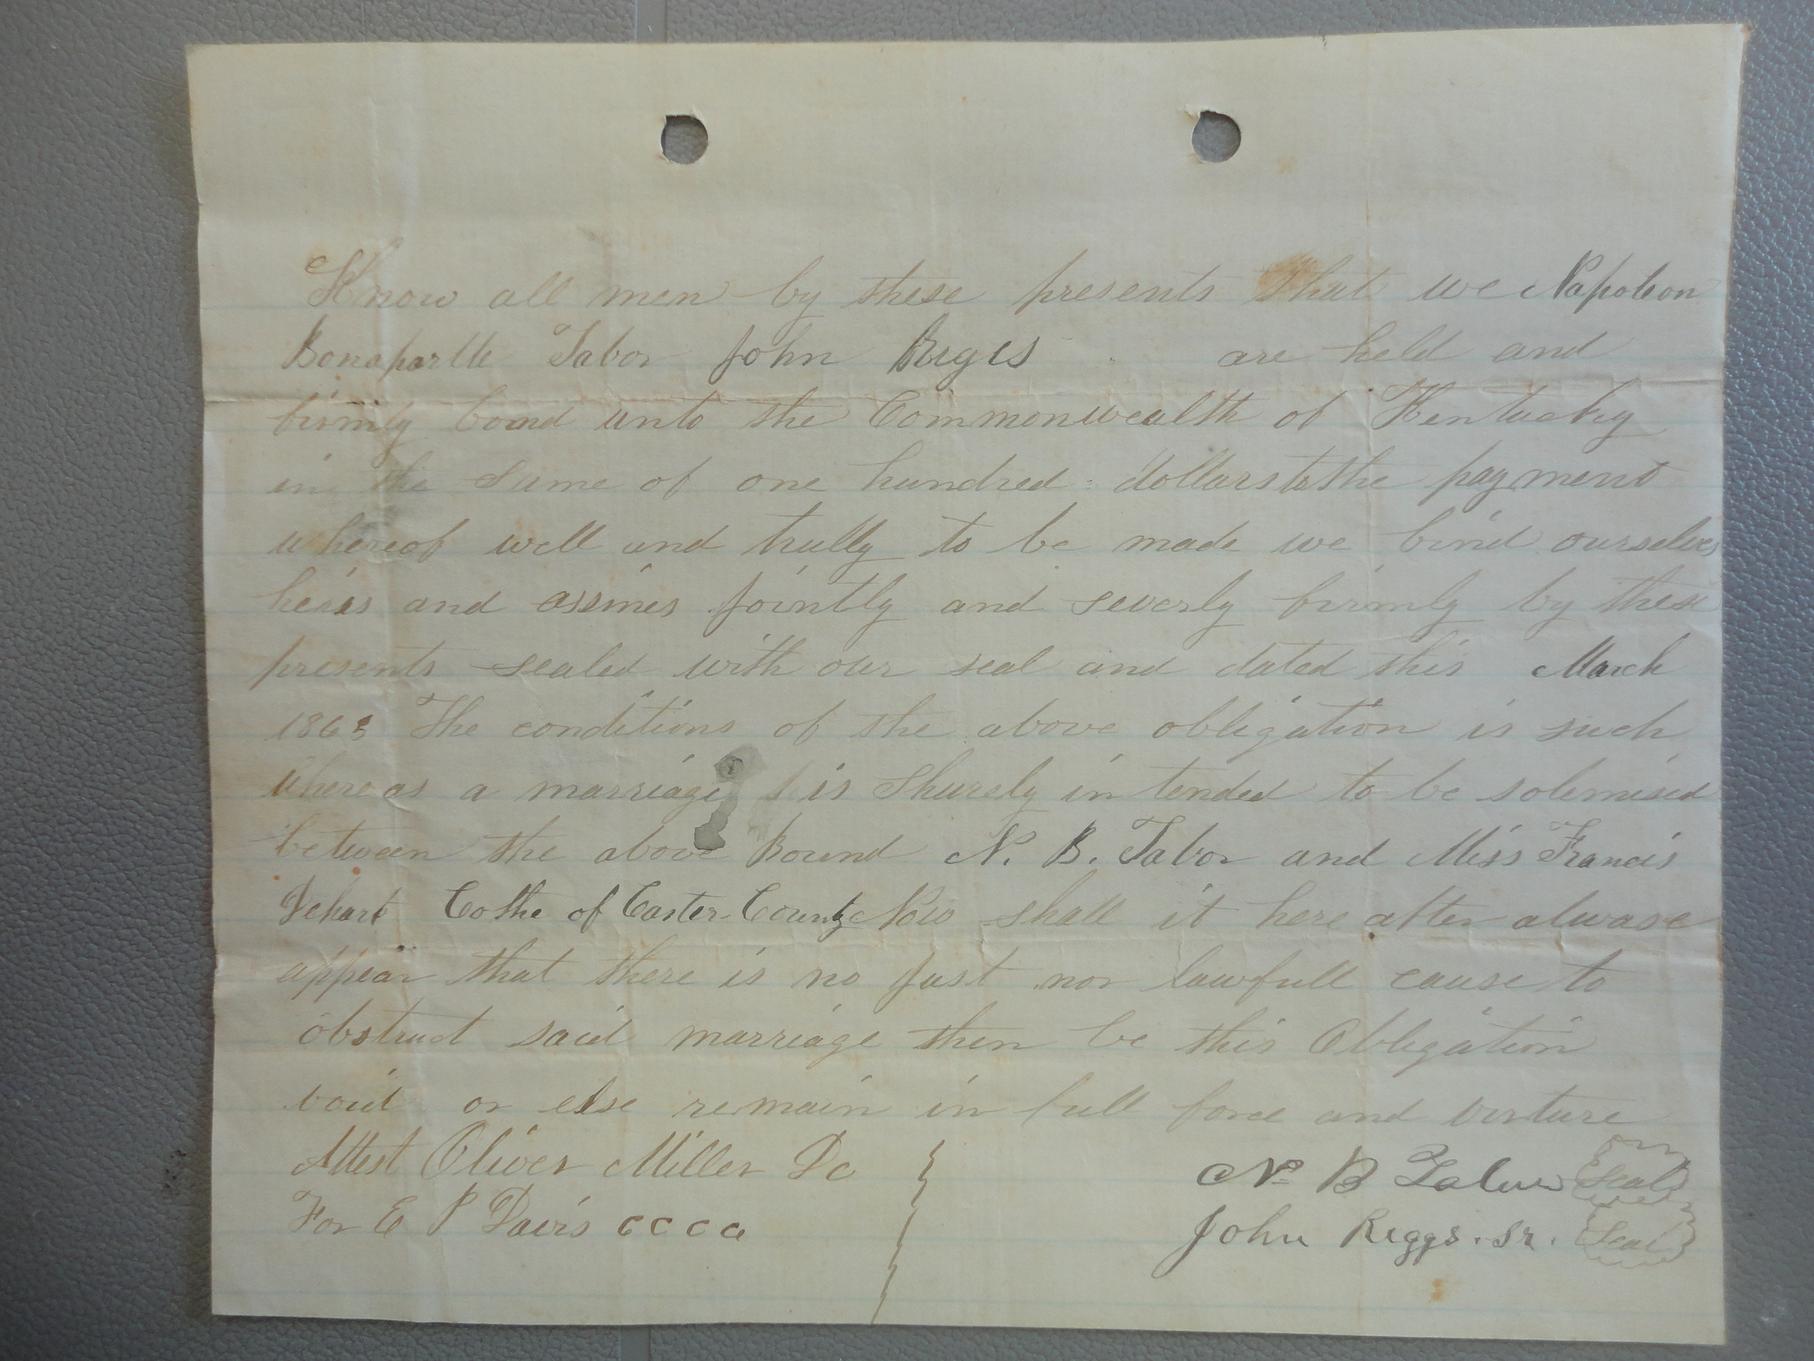 Know all men by these presents that we Napoleon
Bonapartte Tabor John Riggs are held and
firmly bond unto the Commonwealth of Kentucky
in the Sume of one hundred dollars to the payment
whereof well and trully to be made we bind ourselves
heirs and assines jointly and severly firmly by these
presents sealed with our seal and dated this March
1863 The conditions of the above obligation is such
whereas a marriage is shurely intended to be solemised
between the above Bound N. B. Tabor and Miss Francis
of Carter County Now shall it here after alwase
appear that there is no just nor lawfull cause to
obstruct said marriage then be this Obligation
void or else remain in full force and virture
Attest Oliver Miller Dc
For E P Davis c c c c
N. B Tabor Seal
John Riggs. sr. Seal